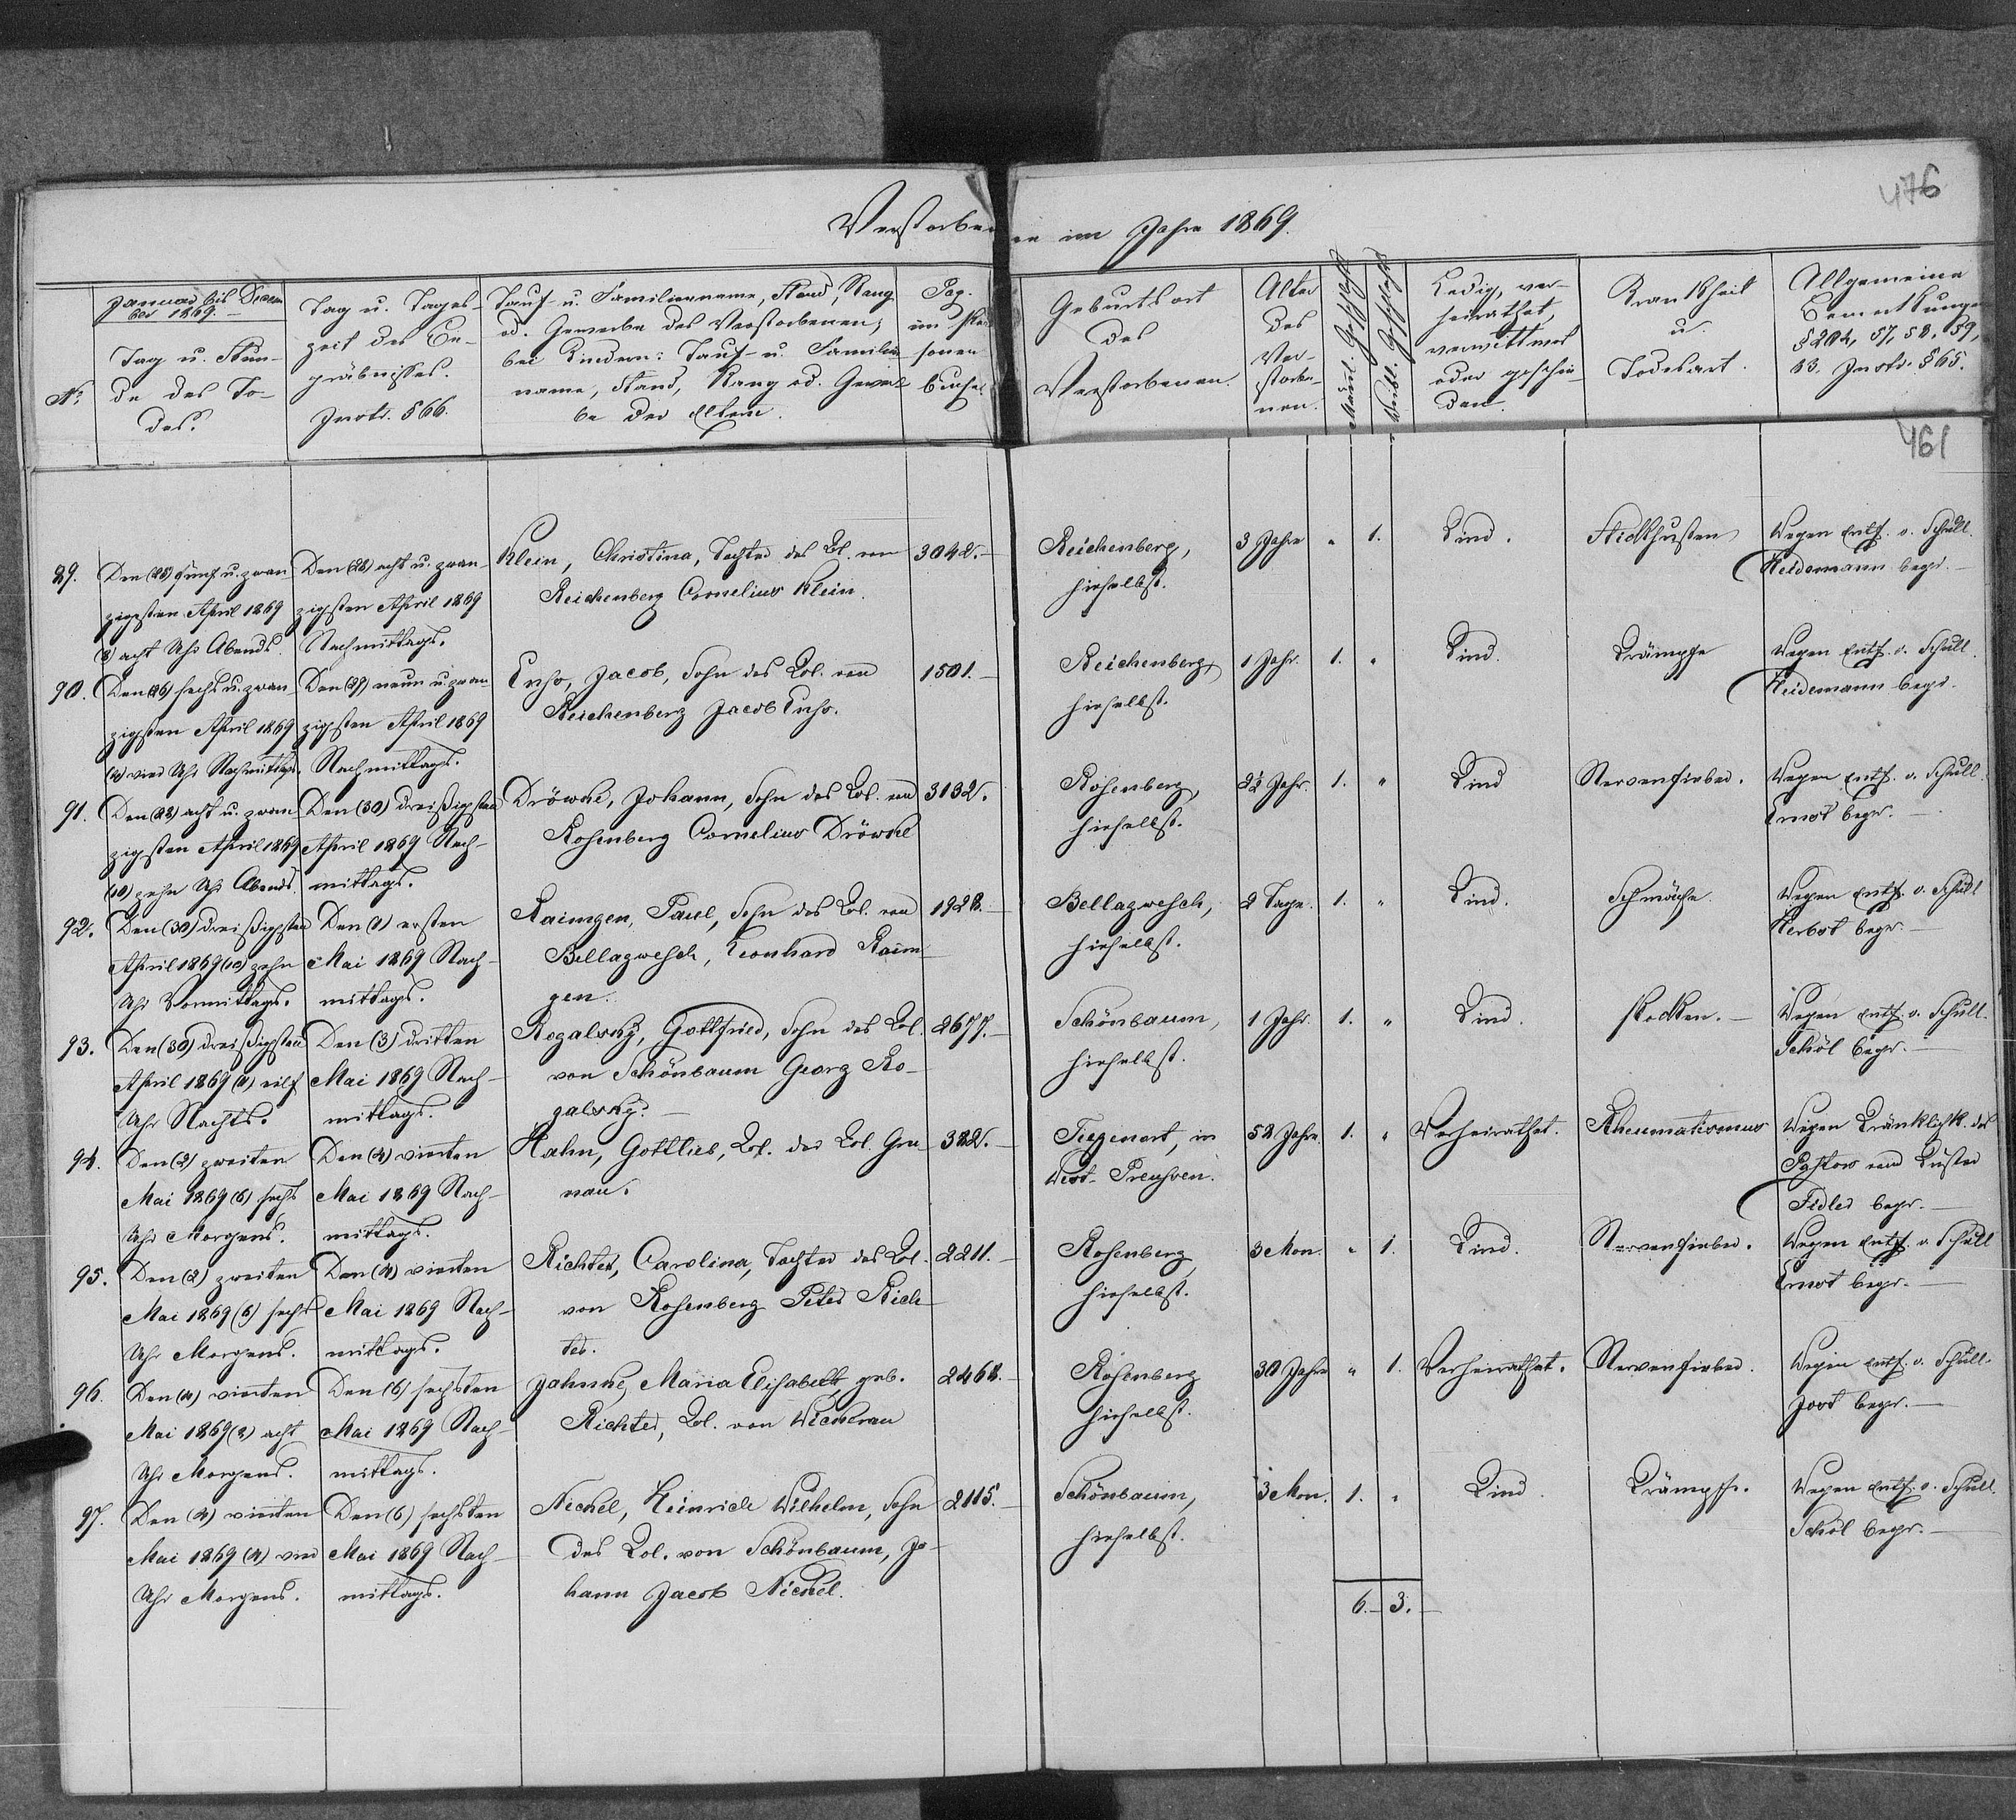 476
Verstorbene im Jahre 1869.
Januar bis Decem
ber 1869.
Nr.
Tag u. Stun-
de des To-
des.
Tag u. Tages-
zeit des Be-
gräbnisses.
Instr. § 66.
Tauf- u. Familienname, Stand, Rang
od. Gewerbe des Verstorbenen;
bei Kindern: Tauf- u. Familien
name, Stand, Rang od. Gewer
be der Eltern.
Pag.
im Per
sonen
buche.
Geburtsort
des
Verstorbenen.
Alter
des
Ver-
storbe-
nen.
Männl. Geschlecht
Weibl. Geschlecht
Ledig, ver-
heirathet,
verwittwet
oder geschie-
den.
Krankheit
u.
Todesart.
Allgemeine
Bemerkungen
57, 58, 59,
63. Instr. § 65.
461
89.
Den (25) fünf u. zwan
zigsten April 1869
(8) acht Uhr Abends.
Den (28) acht u. zwan-
zigsten April 1869
Nachmittags.
Klein, Christina, Tochter des Col. von
Reichenberg Cornelius Klein.
3042.
Reichenberg,
hieselbst.
3 Jahre
"
1.
Kind.
Stickhusten
Wegen Entf. v. Schull.
Heidemann begr.
90.
Den (26) sechs u. zwan
zigsten April 1869
(4) vier Uhr Nachmittags.
Den (29) neun u. zwan
zigsten April 1869
Nachmittags.
Enss, Jacob, Sohn des Col. von
Reichenberg Jacob Enss.
1501.
Reichenberg,
hieselbst.
1 Jahr.
1.
"
Kind.
Krämpfe
Wegen Entf. v. Schull.
Heidemann begr.
91.
Den (28) acht u. zwan
zigsten April 1869
(10) zehn Uhr Abends.
Den (30) dreißigsten
April 1869 Nach-
mittags.
Dröwke, Johann, Sohn des Col. von
Rosenberg Cornelius Dröwke
3132.
Rosenberg,
hieselbst.
2½ Jahr.
1.
"
Kind
Nervenfieber.
Wegen Entf. v. Schull.
Ernst begr.
92.
Den (30) dreißigsten
April 1869 (10) zehn
Uhr Vormittags.
Den (1) ersten
Mai 1869 Nach-
mittags.
Raimgen, Paul, Sohn des Col. von
Bellagwesch, Leonhard Raim
gen.
1928.
Bellagwesch,
hieselbst.
2 Tage.
1.
"
Kind.
Schwäche
Wegen Entf. v. Schull
Herbst begr.
93.
Den (30) dreißigsten
April 1869 (11) eilf
Uhr Nachts.
Den (3) dritten
Mai 1869 Nach-
mittags.
Rogalsky, Gottfried, Sohn des Col.
von Schönbaum Georg Ro-
galsky.
2677.
Schönbaum,
hieselbst.
1 Jahr.
1.
"
Kind.
Pocken.
Wegen Entf. v. Schull.
Schöl begr.
94.
Den (2) zweiten
Mai 1869 (6) sechs
Uhr Morgens.
Den (4) vierten
Mai 1869 Nach-
mittags.
Hahn, Gottlieb, Col. der Col. Gru
nau.
322.
Tiegenort, in
West-Preussen.
52 Jahre.
1.
"
Verheirathet.
Rheumatismus
Wegen Kränklichk. des
Pastors vom Küster
Fidler begr.
95.
Den (2) zweiten
Mai 1869 (6) sechs
Uhr Morgens.
Den (4) vierten
Mai 1869 Nach-
mittags.
Richter, Carolina, Tochter des Col.
von Rosenberg Peter Rich-
ter.
2211.
Rosenberg
hieselbst.
3 Mon.
"
1.
Kind.
Nervenfieber.
Wegen Entf. v. Schull
Ernst begr.
96.
Den (4) vierten
Mai 1869 (8) acht
Uhr Morgens.
Den (6) sechsten
Mai 1869 Nach-
mittags.
Jahnke, Maria Elisabeth, geb.
Richter, Col. von Wickerau
2468.
Rosenberg
hieselbst.
30 Jahre
"
1.
Verheirathet.
Nervenfieber.
Wegen Entf. v. Schull.
Jost begr.
97.
Den (4) vierten
Mai 1869 (4) vier
Uhr Morgens.
Den (6) sechsten
Mai 1869 Nach-
mittags.
Nickel, Heinrich Wilhelm, Sohn
des Col. von Schönbaum, Jo-
hann Jacob Nickel.
2115.
Schönbaum,
hieselbst.
3 Mon.
1.
"
Kind.
Krämpfe.
Wegen Entf. v. Schull.
Schöl begr.
6. 3.